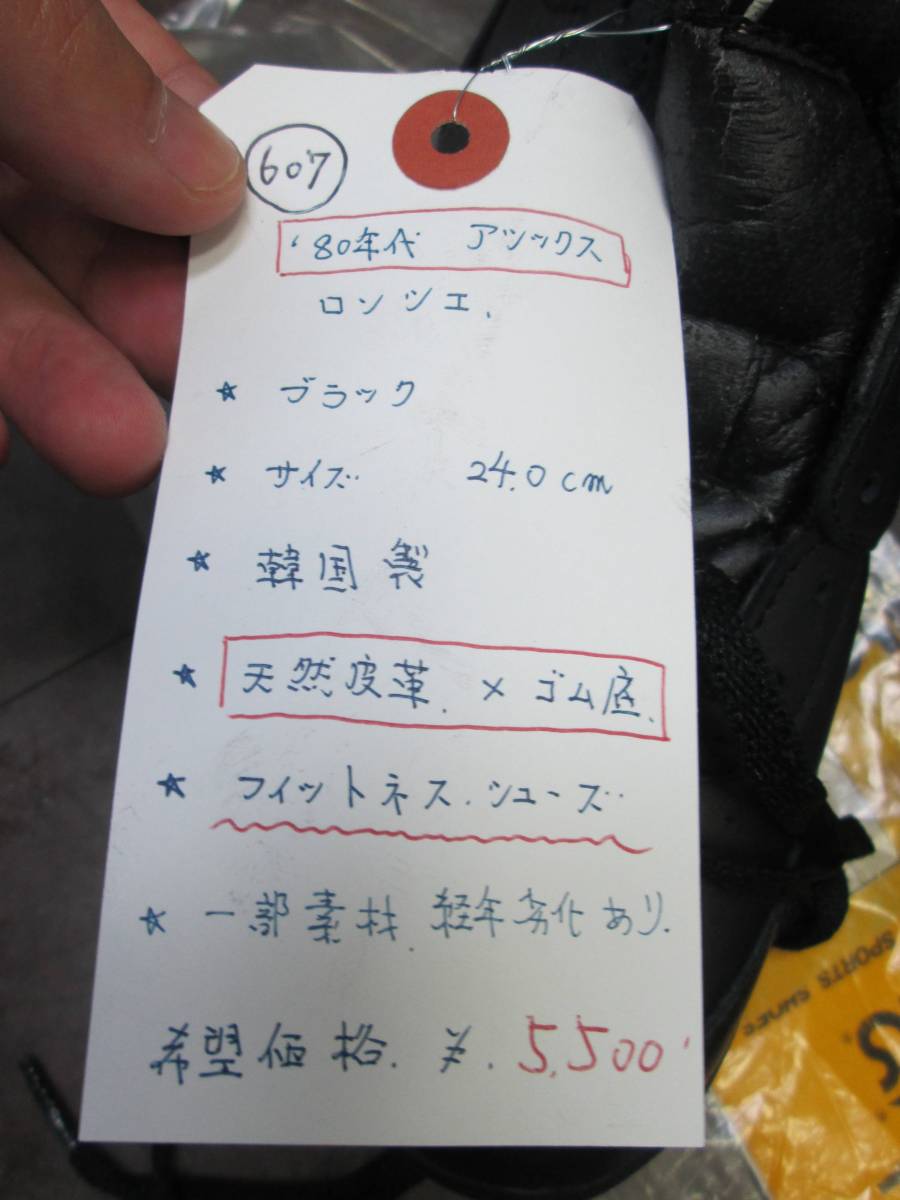 607
'80年代 アシックス
ロンシエ.
★ ブラック
★ サイズ 24.0cm
★ 韓国製
★ 天然皮革. × ゴム底.
★ フィットネス.シューズ
★ 一部素材.経年劣化あり.
希望価格. ¥. 5,500'
SPORTS SHOES